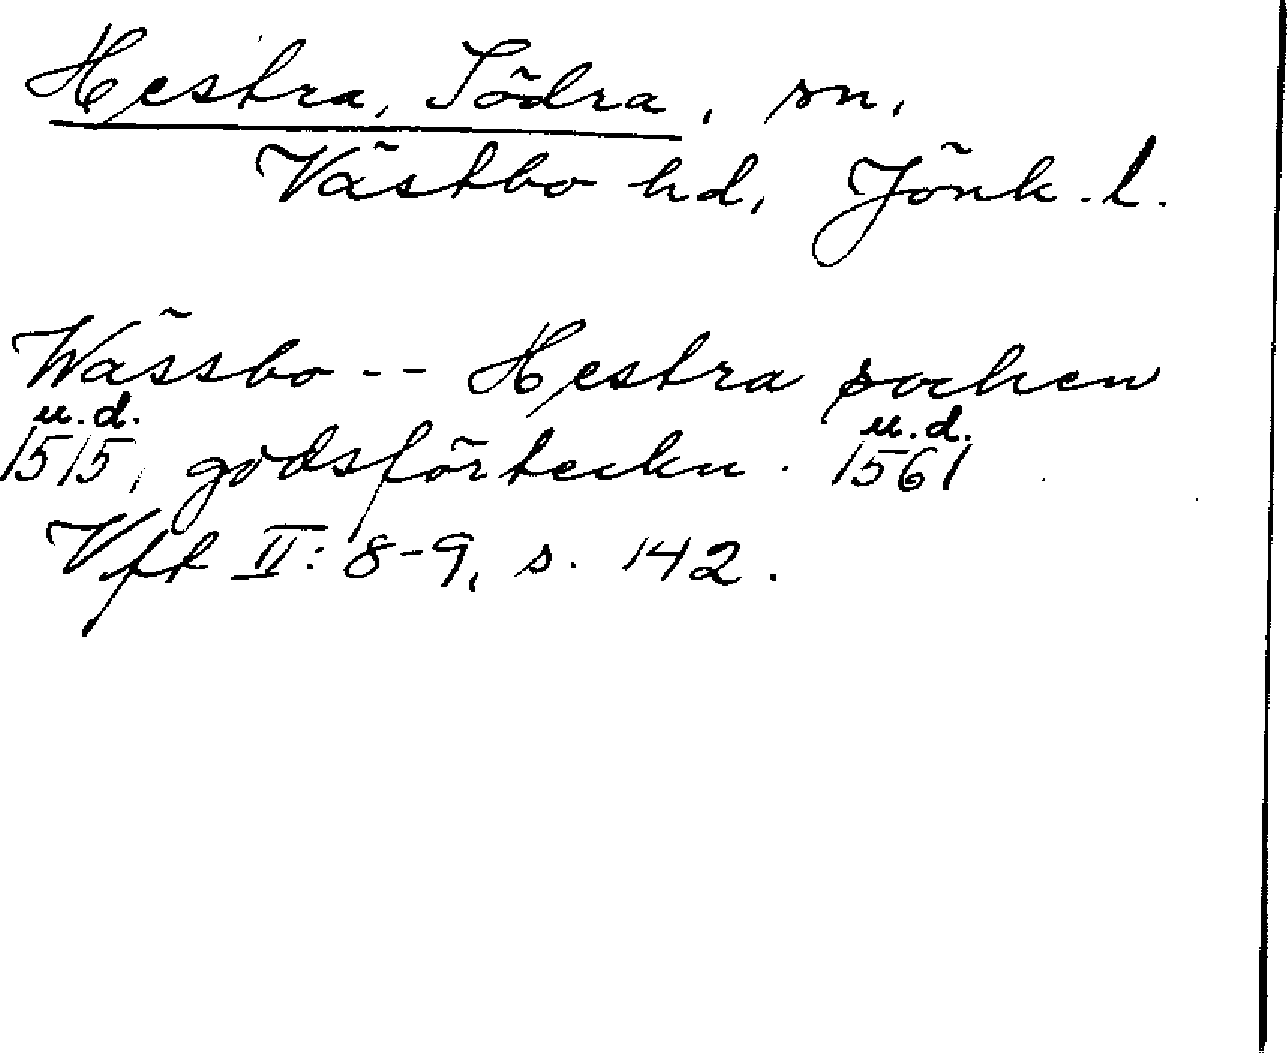 Hestra, Södra, sn,
Västbo hd, Jönk. l.
Wässbo -- Hestra sochen
u.d. u.d.
1515, godsförteckn. 1561
Vft II: 8-9, s. 142.